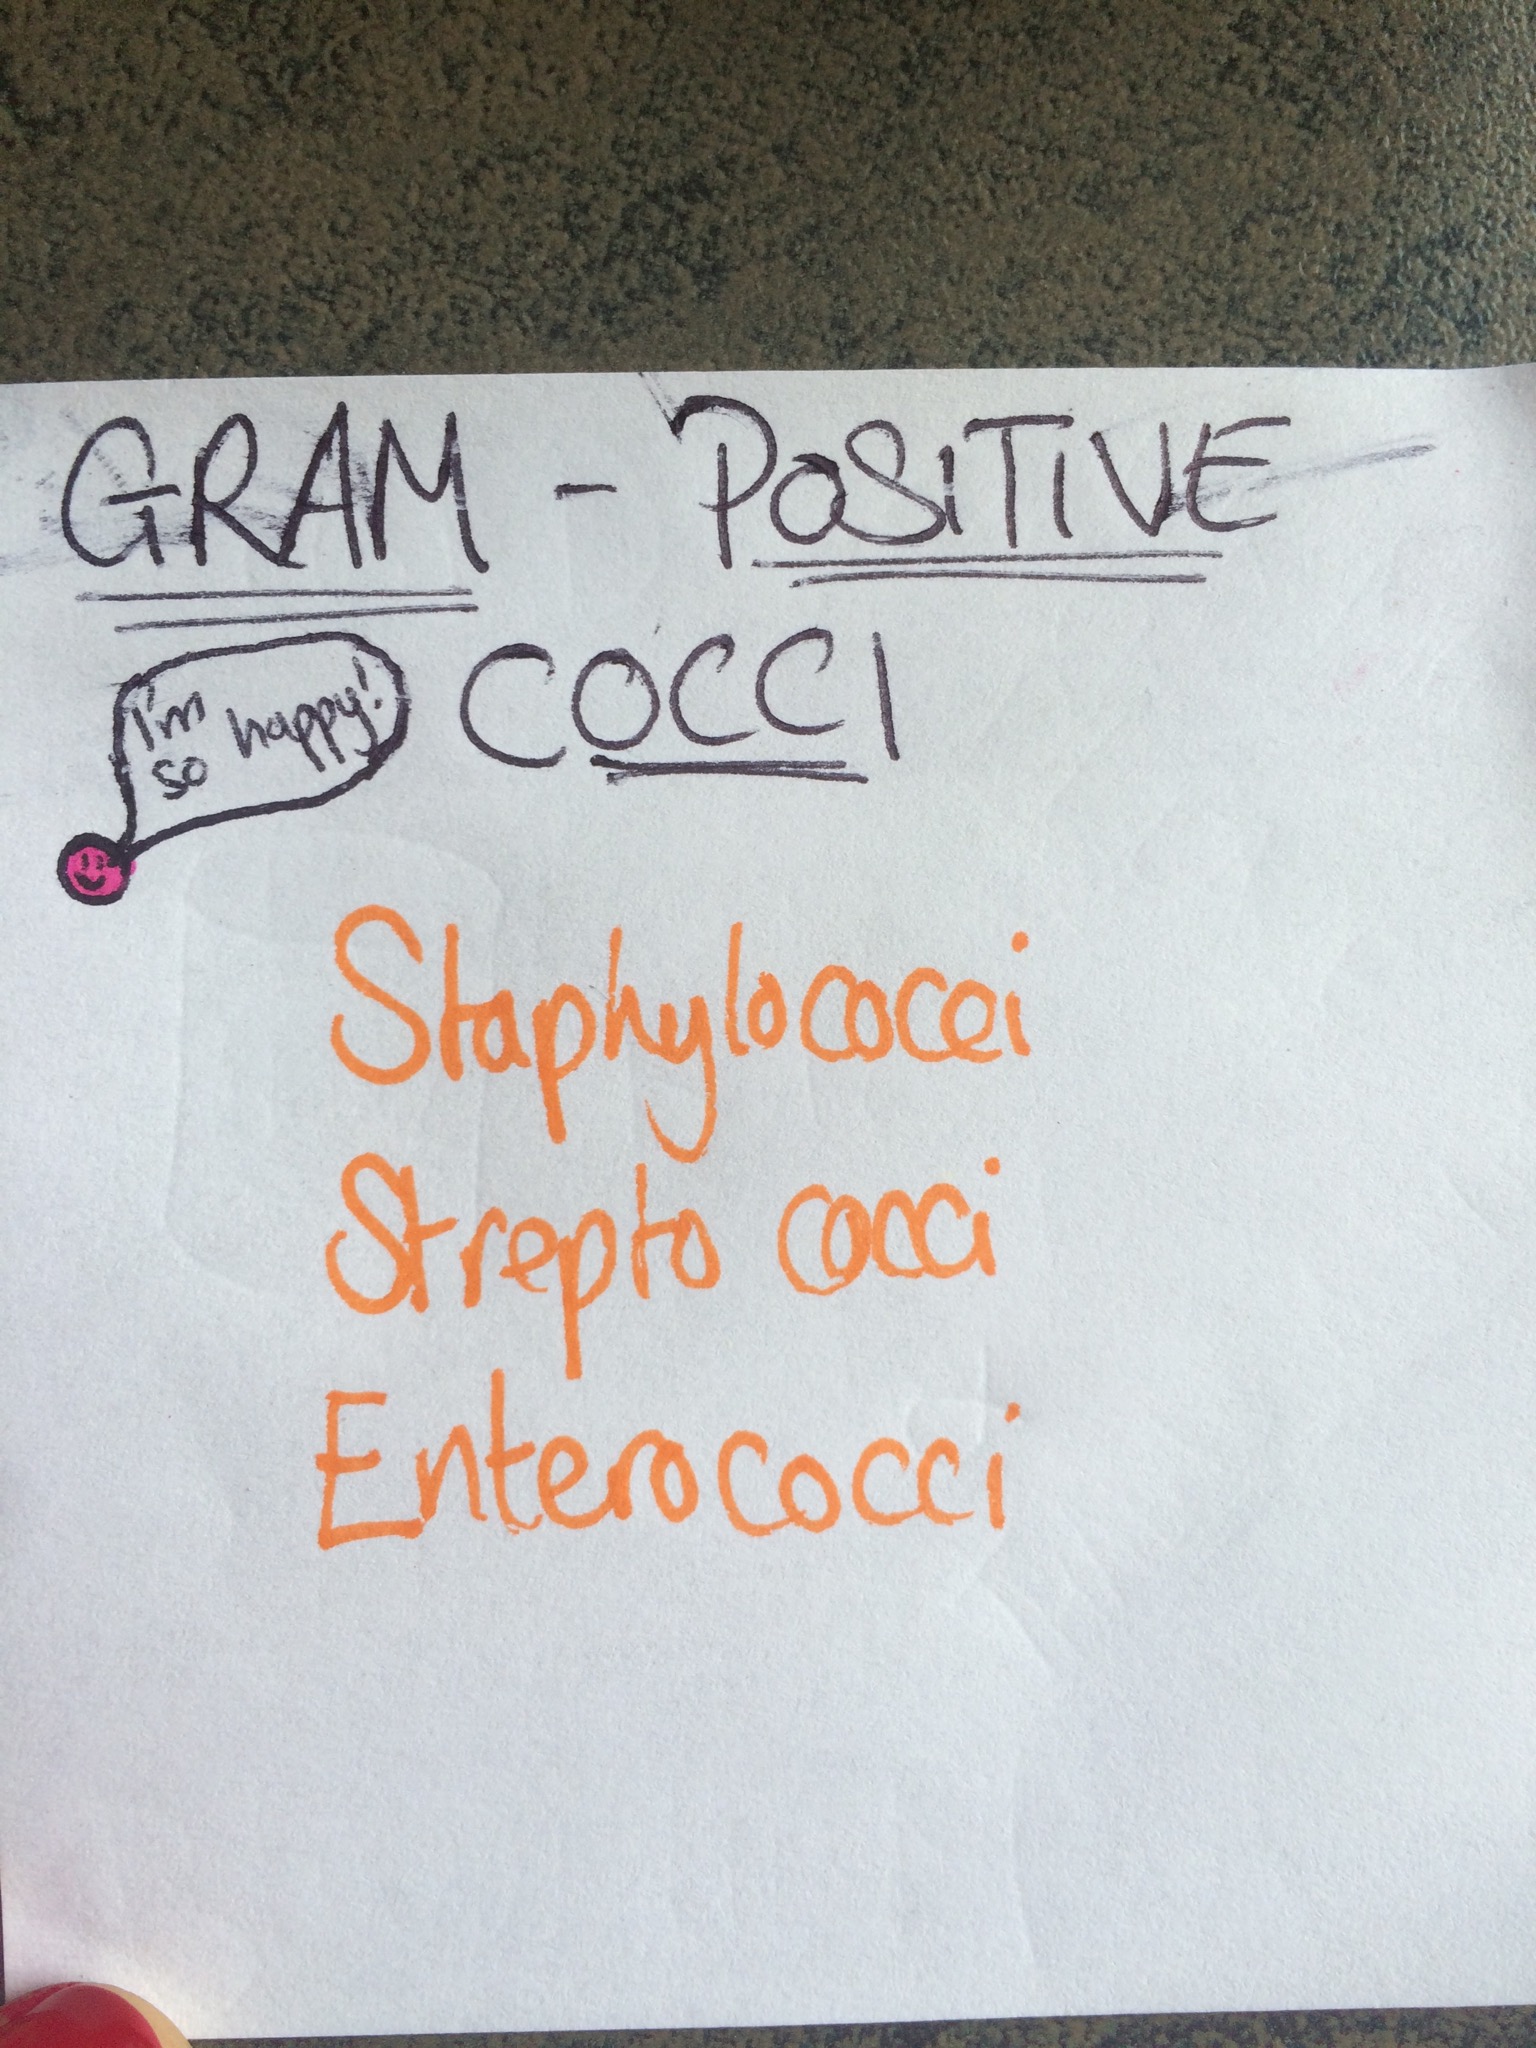 GRAM - POSITIVE
COCCI
I'm
so happy!
Staphylococci
Strepto cocci
Enterococci